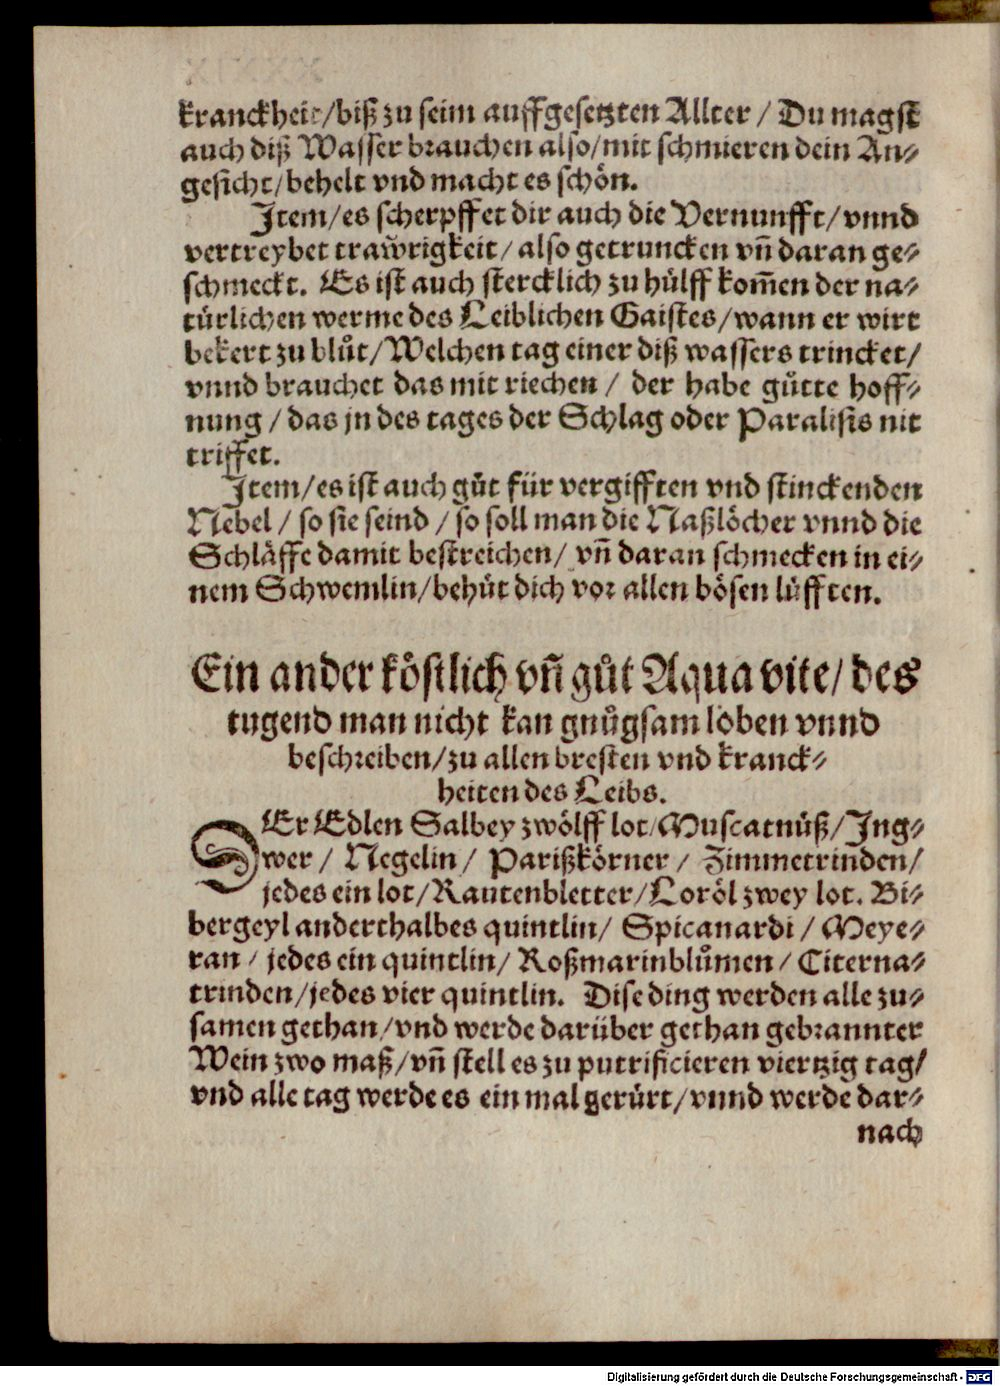 kranckheit/biß zu seim auffgesetzten Allter / Du magst
auch diß Wasser brauchen also/mit schmieren dein An⸗
gesicht/behelt vnd macht es schön.
Item/es scherpffet dir auch die Vernunfft/vnnd
vertreybet traẘrigkeit/ also getruncken vñ daran ge⸗
schmeckt. Es ist auch stercklich zu hülff kom̃en der na⸗
türlichen werme des Leiblichen Gaistes/wann er wirt
bekert zu blůt/Welchen tag einer diß wassers trincket/
vnnd brauchet das mit riechen / der habe gůtte hoff⸗
nung / das jn des tages der Schlag oder Paralisis nit
triffet.
Item/es ist auch gůt für vergifften vnd stinckenden
Nebel / so sie seind / so soll man die Naßlöcher vnnd die
Schläffe damit bestreichen/ vñ daran schmecken in ei⸗
nem Schwemlin/behüt dich vor allen bösen lüfften.
Ein ander köstlich vñ gůt Aqua vite/ des
tugend man nicht kan gnůgsam loben vnnd
beschreiben/zu allen bresten vnd kranck⸗
heiten des Leibs.
DEr Edlen Salbey zwölff lot/Muscatnüß/Ing⸗
wer / Negelin / Parißkörner / Zimmetrinden/
jedes ein lot/Rautenbletter/Loröl zwey lot. Bi⸗
bergeyl anderthalbes quintlin/ Spicanardi / Meye⸗
ran / jedes ein quintlin/ Roßmarinblůmen / Citerna⸗
trinden/jedes vier quintlin. Dise ding werden alle zu⸗
samen gethan/vnd werde darüber gethan gebrannter
Wein zwo maß/vñ stell es zu putrificieren viertzig tag/
vnd alle tag werde es ein mal gerürt/vnnd werde dar⸗
nach
Digitalisierung gefördert durch die Deutsche Forschungsgemeinschaft - DFG